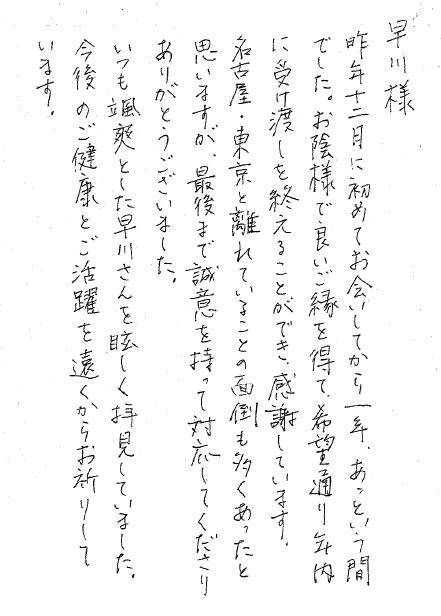 早川様
昨年十二月に初めてお会いしてから一年、あっという間
でした。お陰様で良いご縁を得て、希望通り年内
に受け渡しを終えることができ、感謝しています。
名古屋・東京と離れていることの面倒も多くあったと
思いますが、最後まで誠意を持って対応してくださり
ありがとうございました。
いつも颯爽とした早川さんを眩しく拝見していました。
今後のご健康とご活躍を遠くからお祈りして
います。